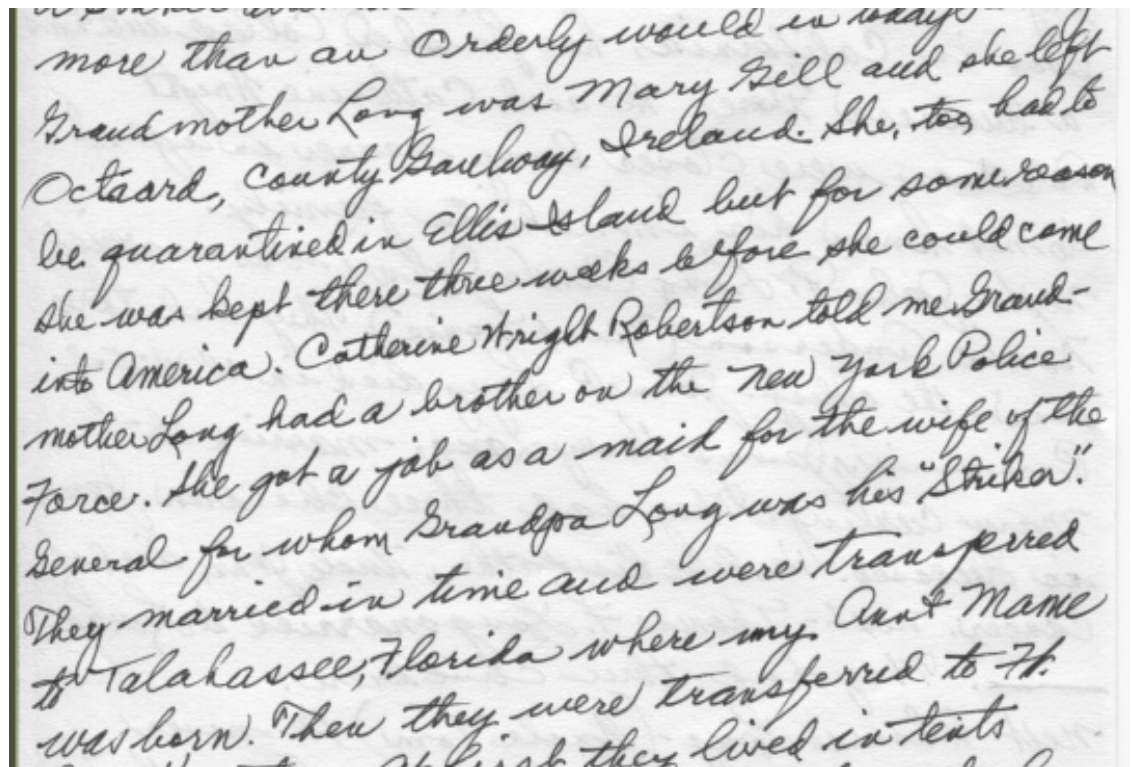 more than an Orderly would in today
Grandmother Long was Mary Gill and she left
Octaard, County Gaulway, Ireland. She, too, had to
be quarantined in Ellis Island but for some reason
she was kept there three weeks before she could come
into America. Catherine Wright Robertson told me Grand-
mother Long had a brother on the New York Police
Force. She got a job as a maid for the wife of the
General for whom Grandpa Long was his "Striker".
They married in time and were transferred
to Talahassee, Florida where my Aunt Mame
was born. Then they were transferred to Ft.
they lived in tents